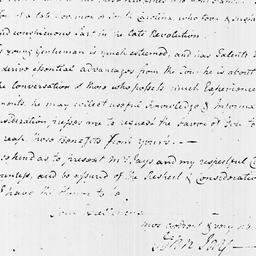 of a late Governor of So. Carolina, who took a
and conspicuous Part in the late Revolution.
young Gentleman is much esteemed, and has Talents to
derive essential Advantages from the Tour he is about
the Conversation of those who possess much Experience
he may collect useful Knowledge & Informa
me to request the favor of You to
reap those Benefits from yours. —
so kind as to present Mrs Jays and my respectful Co
and be assured of the Respect & Consideration
I have the Honor to be
Your Excellency's
most obedient &
John Jay —